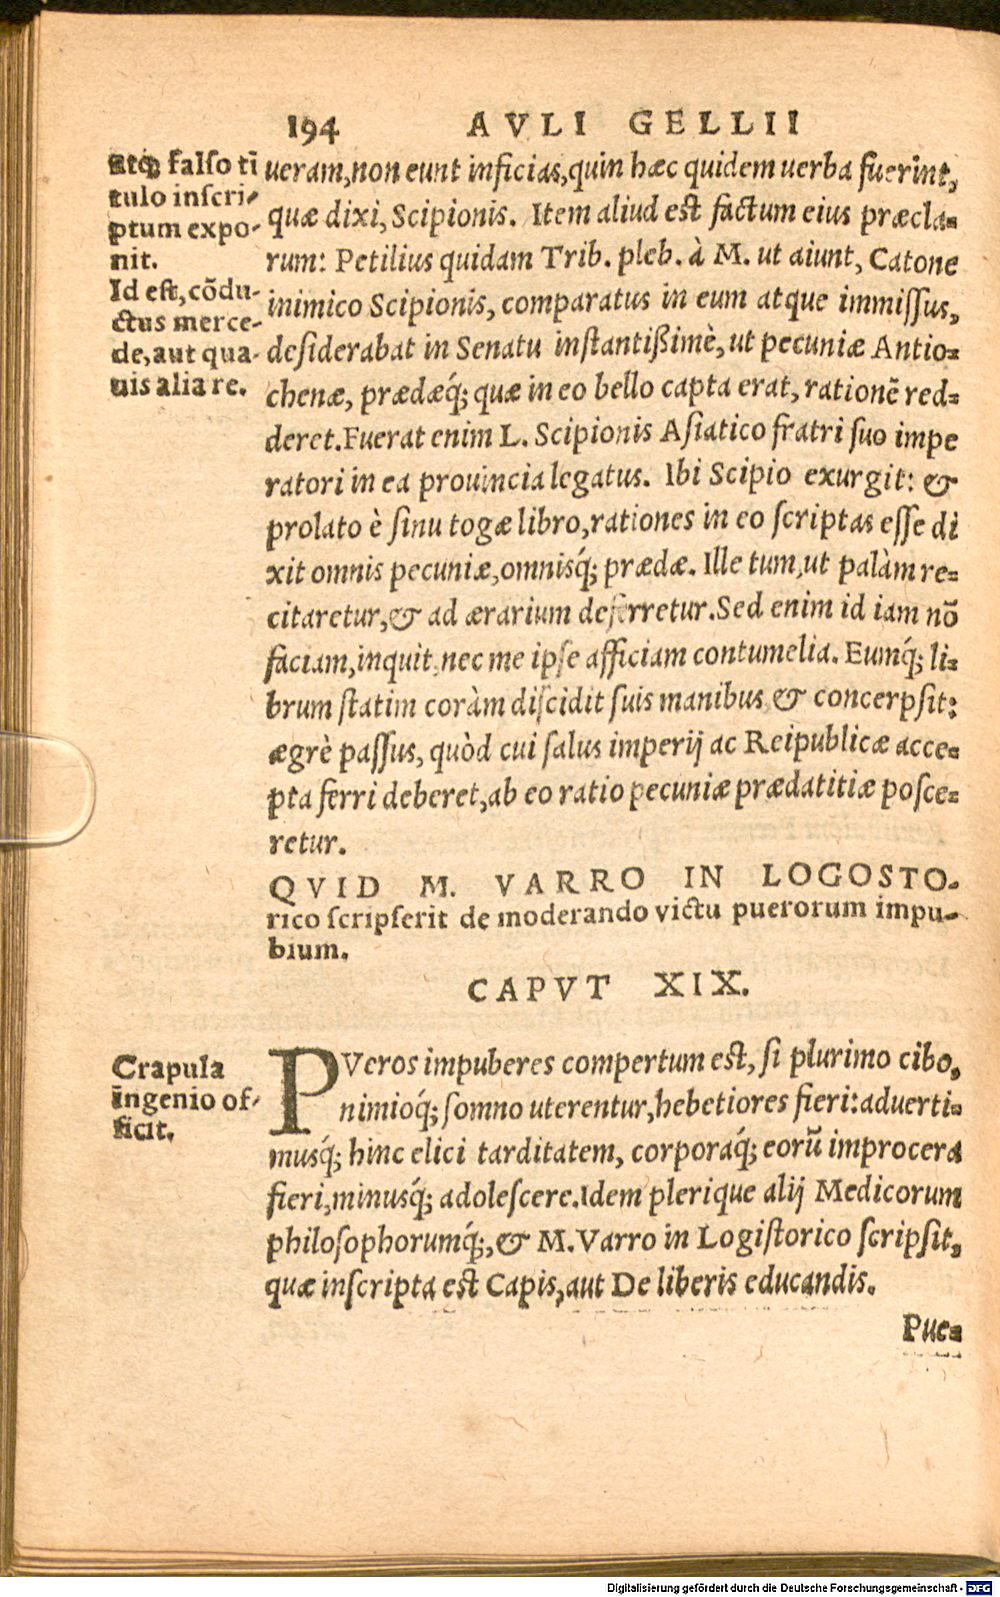 194 AVLI GELLII
atq́; falso ti
tulo inscri-
ptum expo-
nit.
Id est, cõdu-
ctus merce-
de, aut qua-
uis alia re.
ueram, non eunt inficias, quin hæc quidem uerba fuerint,
quæ dixi, Scipionis. Item aliud est factum eius præcla-
rum: Petilius quidam Trib. pleb. à M. ut aiunt, Catone
inimico Scipionis, comparatus in eum atque immissus,
desiderabat in Senatu instantißimè, ut pecuniæ Antio-
chenæ, prædæq́; quæ in eo bello capta erat, rationẽ red-
deret. Fuerat enim L. Scipionis Asiatico fratri suo impe
ratori in ea prouincia legatus. Ibi Scipio exurgit: &
prolato è sinu togæ libro, rationes in eo scriptas esse di
xit omnis pecuniæ, omnisq́; prædæ. Ille tum, ut palàm re-
citaretur, & ad ærarium deferretur. Sed enim id iam nõ
faciam, inquit, nec me ipse afficiam contumelia. Eumq́; li-
brum statim coràm discidit suis manibus & concerpsit:
ægrè passus, quòd cui salus imperij ac Reipublicæ acce-
pta ferri deberet, ab eo ratio pecuniæ prædatitiæ posce-
retur.
QVID M. VARRO IN LOGOSTO-
rico scripserit de moderando victu puerorum impu-
bium.
CAPVT XIX.
Crapula
ingenio of-
ficit.
PVeros impuberes compertum est, si plurimo cibo,
nimioq́; somno uterentur, hebetiores fieri: aduerti-
musq́; hinc elici tarditatem, corporaq́; eorũ improcera
fieri, minusq́; adolescere. Idem plerique alij Medicorum
philosophorumq́;, & M. Varro in Logistorico scripsit,
quæ inscripta est Capis, aut De liberis educandis.
Pue-
Digitalisierung gefördert durch die Deutsche Forschungsgemeinschaft - DFG